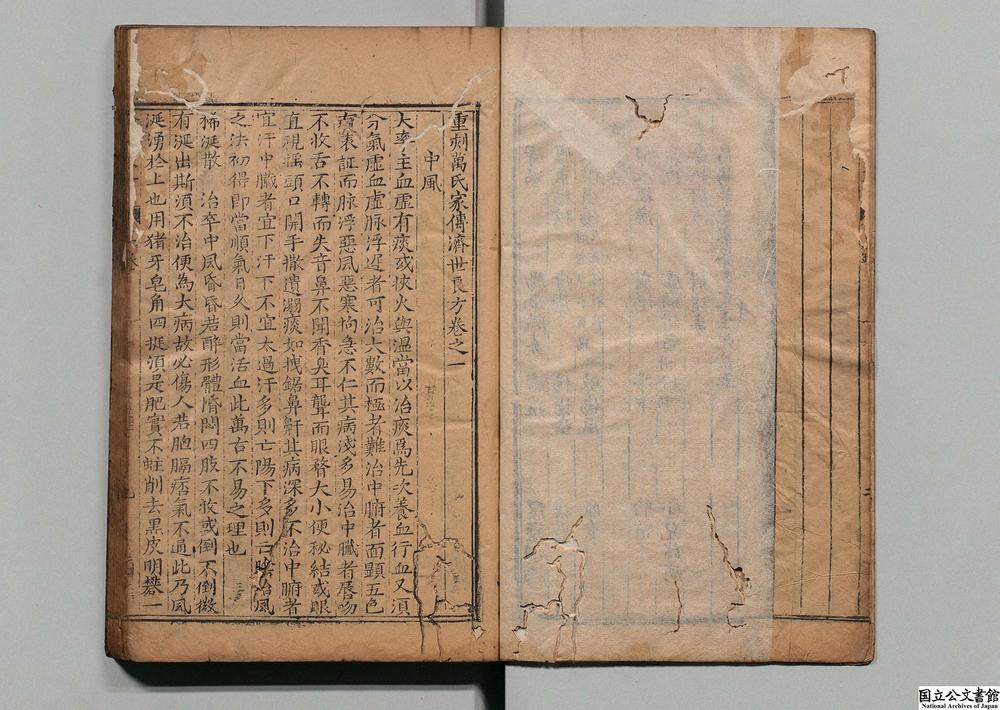 重刻萬氏家傳濟世良方卷之一
中風
大率主血虛有痰或挾火與溫當以治痰爲先次養血行血又須
分氣虛血虛脉浮遲者可治大數而極者難治中腑者面顕五色
有表証而脉浮惡風惡寒拘急不仁其病淺多易治中臟者唇吻
不收舌不轉而失音鼻不聞香臭耳聾而眼瞀大小便秘結或眼
直視揺頭口開手撒遺溺痰如拽鋸鼻鼾其病深多不治中腑者
宜汗中臟者宜下汗下不宜太過汗多則亡陽下多則亡隂治風
之法初得即當順氣日久則當活血此萬古不易之理也
稀涎散 治卒中風昏昏若醉形體惛悶四肢不收或倒不倒微
有涎出斯須不治便為大病故必傷人若胸膈痞氣不通此乃風
涎湧於上也用猪牙皂角四挺須是肥實不蛀削去黒皮明礬一
国立公文書館
National Archives of Japan